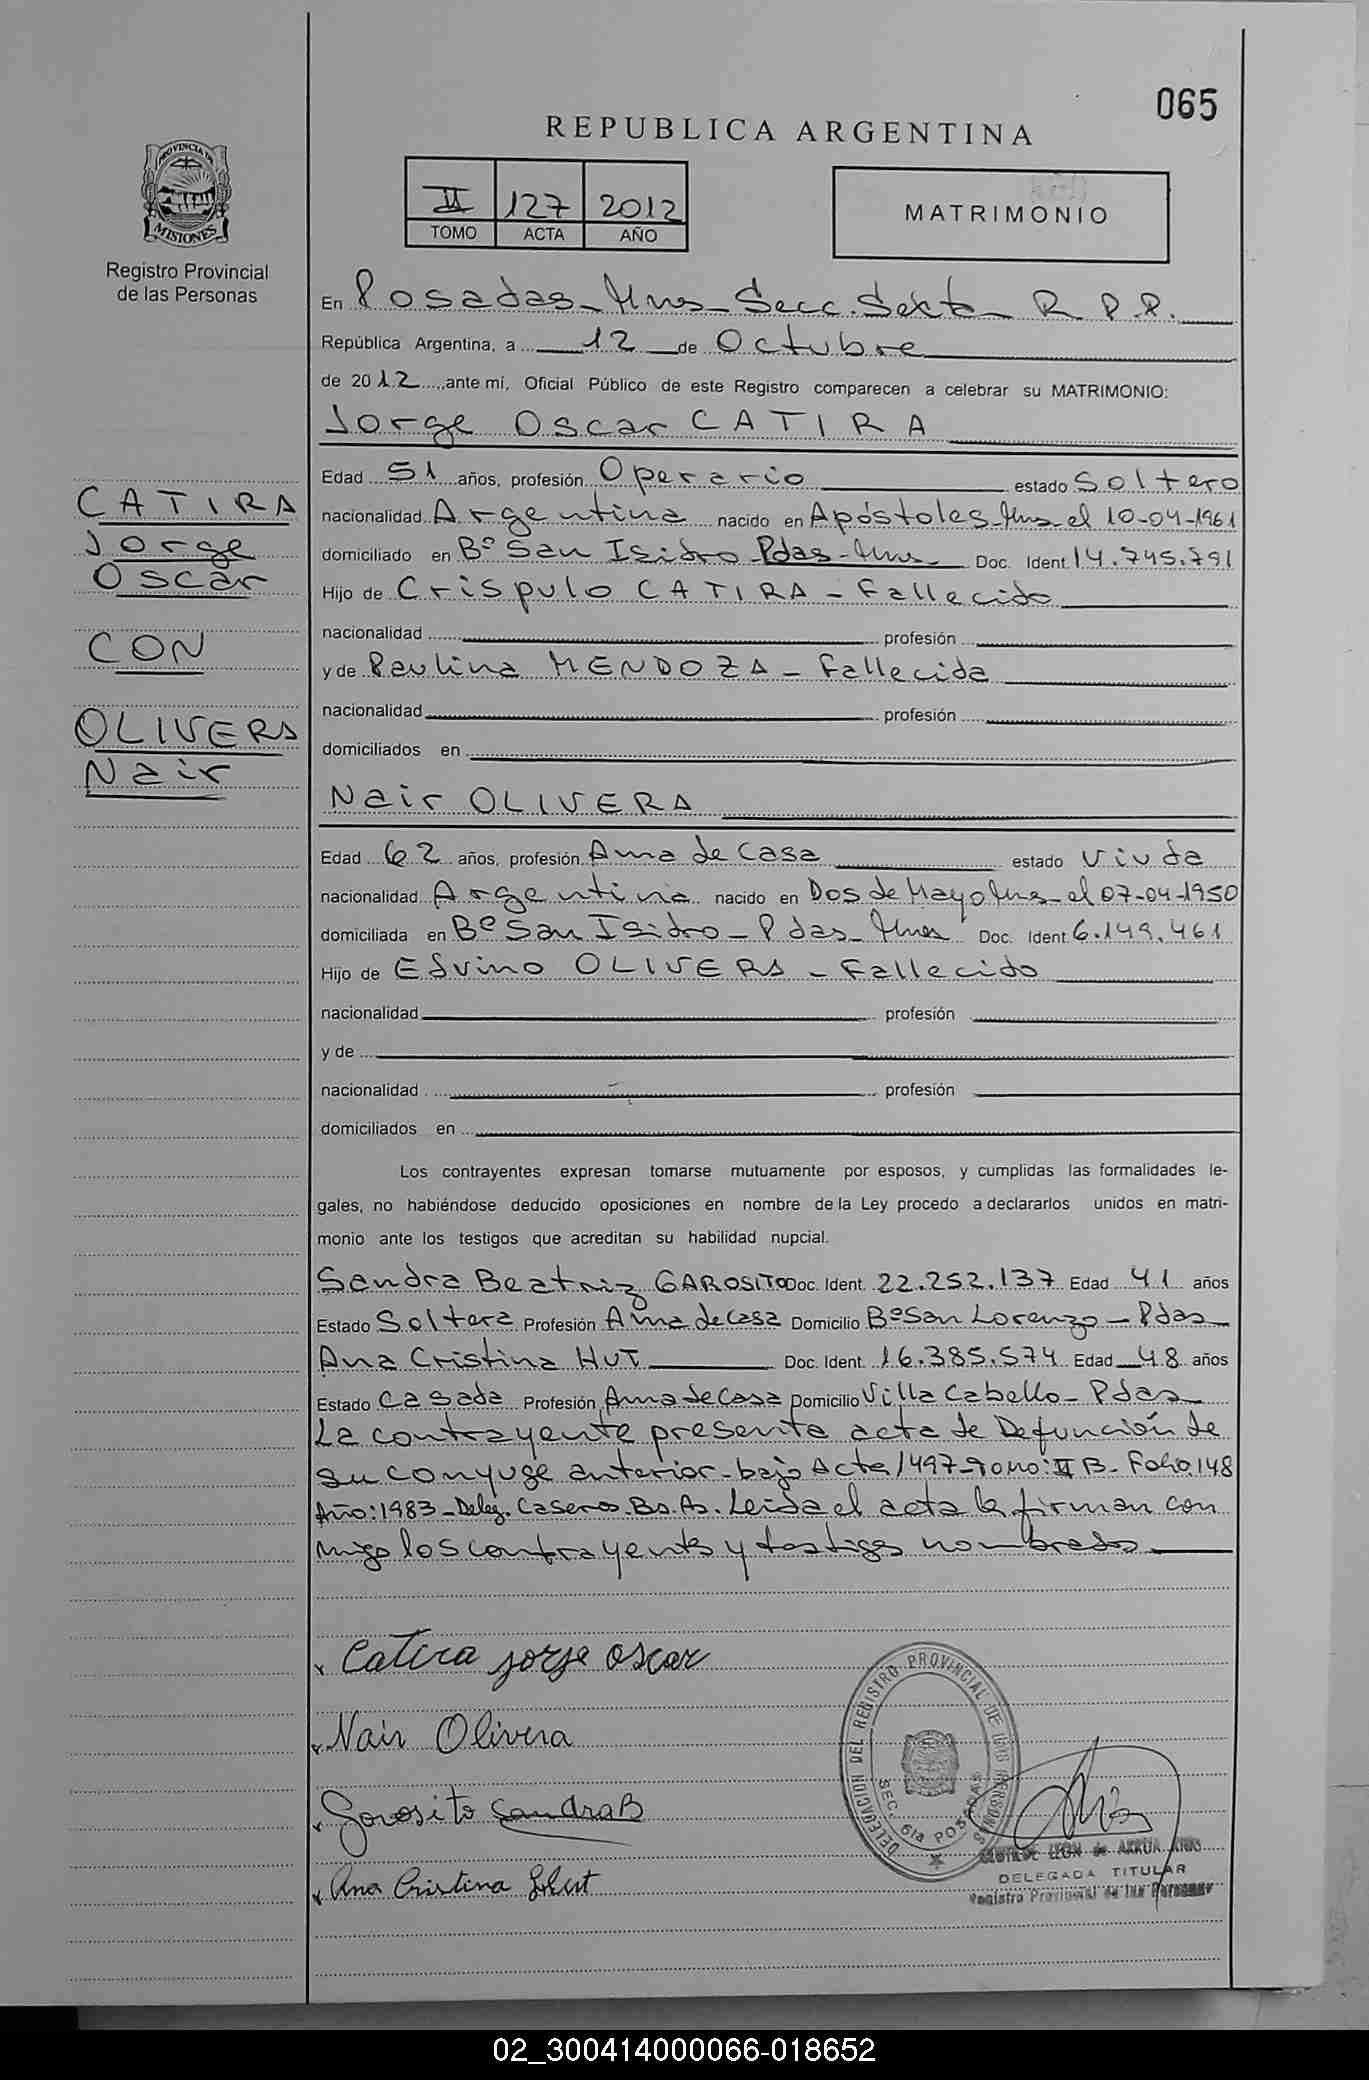 065
REPUBLICA ARGENTINA
PROVINCIA DE
MISIONES
Registro Provincial
de las Personas
II 127 2012
TOMO ACTA AÑO
MATRIMONIO
En Posadas - Mnes - Secc. Sexta R. P. P.
República Argentina, a 12 de Octubre
de 2012, ante mí, Oficial Público de este Registro comparecen a celebrar su MATRIMONIO:
Jorge Oscar CATIRA
CATIRA
Jorge
Oscar
CON
OLIVERA
Nair
Edad 51 años, profesión Operario estado Soltero
nacionalidad Argentina nacido en Apóstoles Mns. el 10-04-1961
domiciliado en Bº San Isidro - Pdas - Mnes Doc. Ident. 14.745.791
Hijo de Crispulo CATIRA - Fallecido
nacionalidad profesión
y de Paulina MENDOZA - Fallecida
nacionalidad profesión
domiciliados en
Nair OLIVERA
Edad 62 años, profesión Ama de Casa estado Viuda
nacionalidad Argentina nacido en Dos de Mayo Mns - el 07-04-1950
domiciliada en Bº San Isidro - Pdas - Mnes Doc. Ident. 6.149.461
Hijo de Edvino OLIVERA - Fallecido
nacionalidad profesión
y de
nacionalidad profesión
domiciliados en
Los contrayentes expresan tomarse mutuamente por esposos, y cumplidas las formalidades le-
gales, no habiéndose deducido oposiciones en nombre de la Ley procedo a declararlos unidos en matri-
monio ante los testigos que acreditan su habilidad nupcial.
Sandra Beatriz GAROSITO Doc. Ident. 22.252.137 Edad 41 años
Estado Soltera Profesión Ama de Casa Domicilio Bº San Lorenzo - Pdas
Ana Cristina HUT Doc. Ident. 16.385.574 Edad 48 años
Estado Casada Profesión Ama de Casa Domicilio Villa Cabello - Pdas
La contrayente presenta acta de Defunción de
su conyuge anterior - bajo Acta 1497 - Tomo: II B - Folio 148
Año: 1983 - Deleg. Caseros. Bs. As. Leida el acta la firman con
migo los contrayentes y testigos nombrados
x Catira Jorge Oscar
x Nair Olivera
x Gorosito Sandra B
x Ana Cristina
DELEGACION DEL REGISTRO PROVINCIAL DE LAS PERSONAS
SEC. 6ta POSADAS
LEON de ARRUA
DELEGADA TITULAR
Registro Provincial de las Personas
02_300414000066-018652